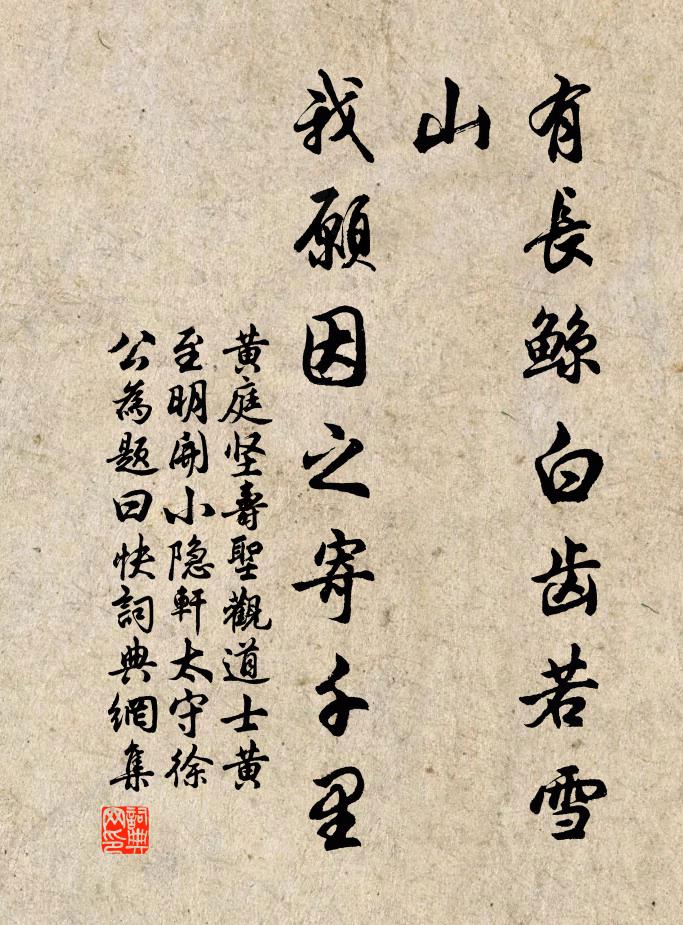 有長鯨白齿若雪
山
我願因之寄千里
黄庭坚壽聖觀道士黄
至明開小隐軒太守徐
公為题曰快詞典網集
詞典
网印